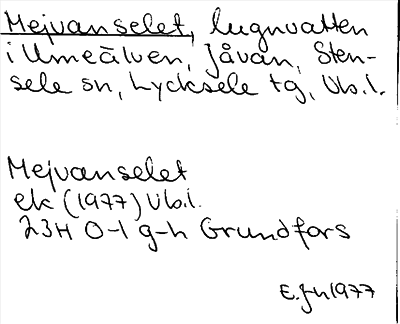 Mejvanselet, lugnvatten
i Umeälven, Jåvan, Sten-
sele sn, Lycksele tg, Vb.l.
Mejvanselet
ek (1977) Vb.l.
23H 0-1 g-h Grundfors
E.Jn 1977